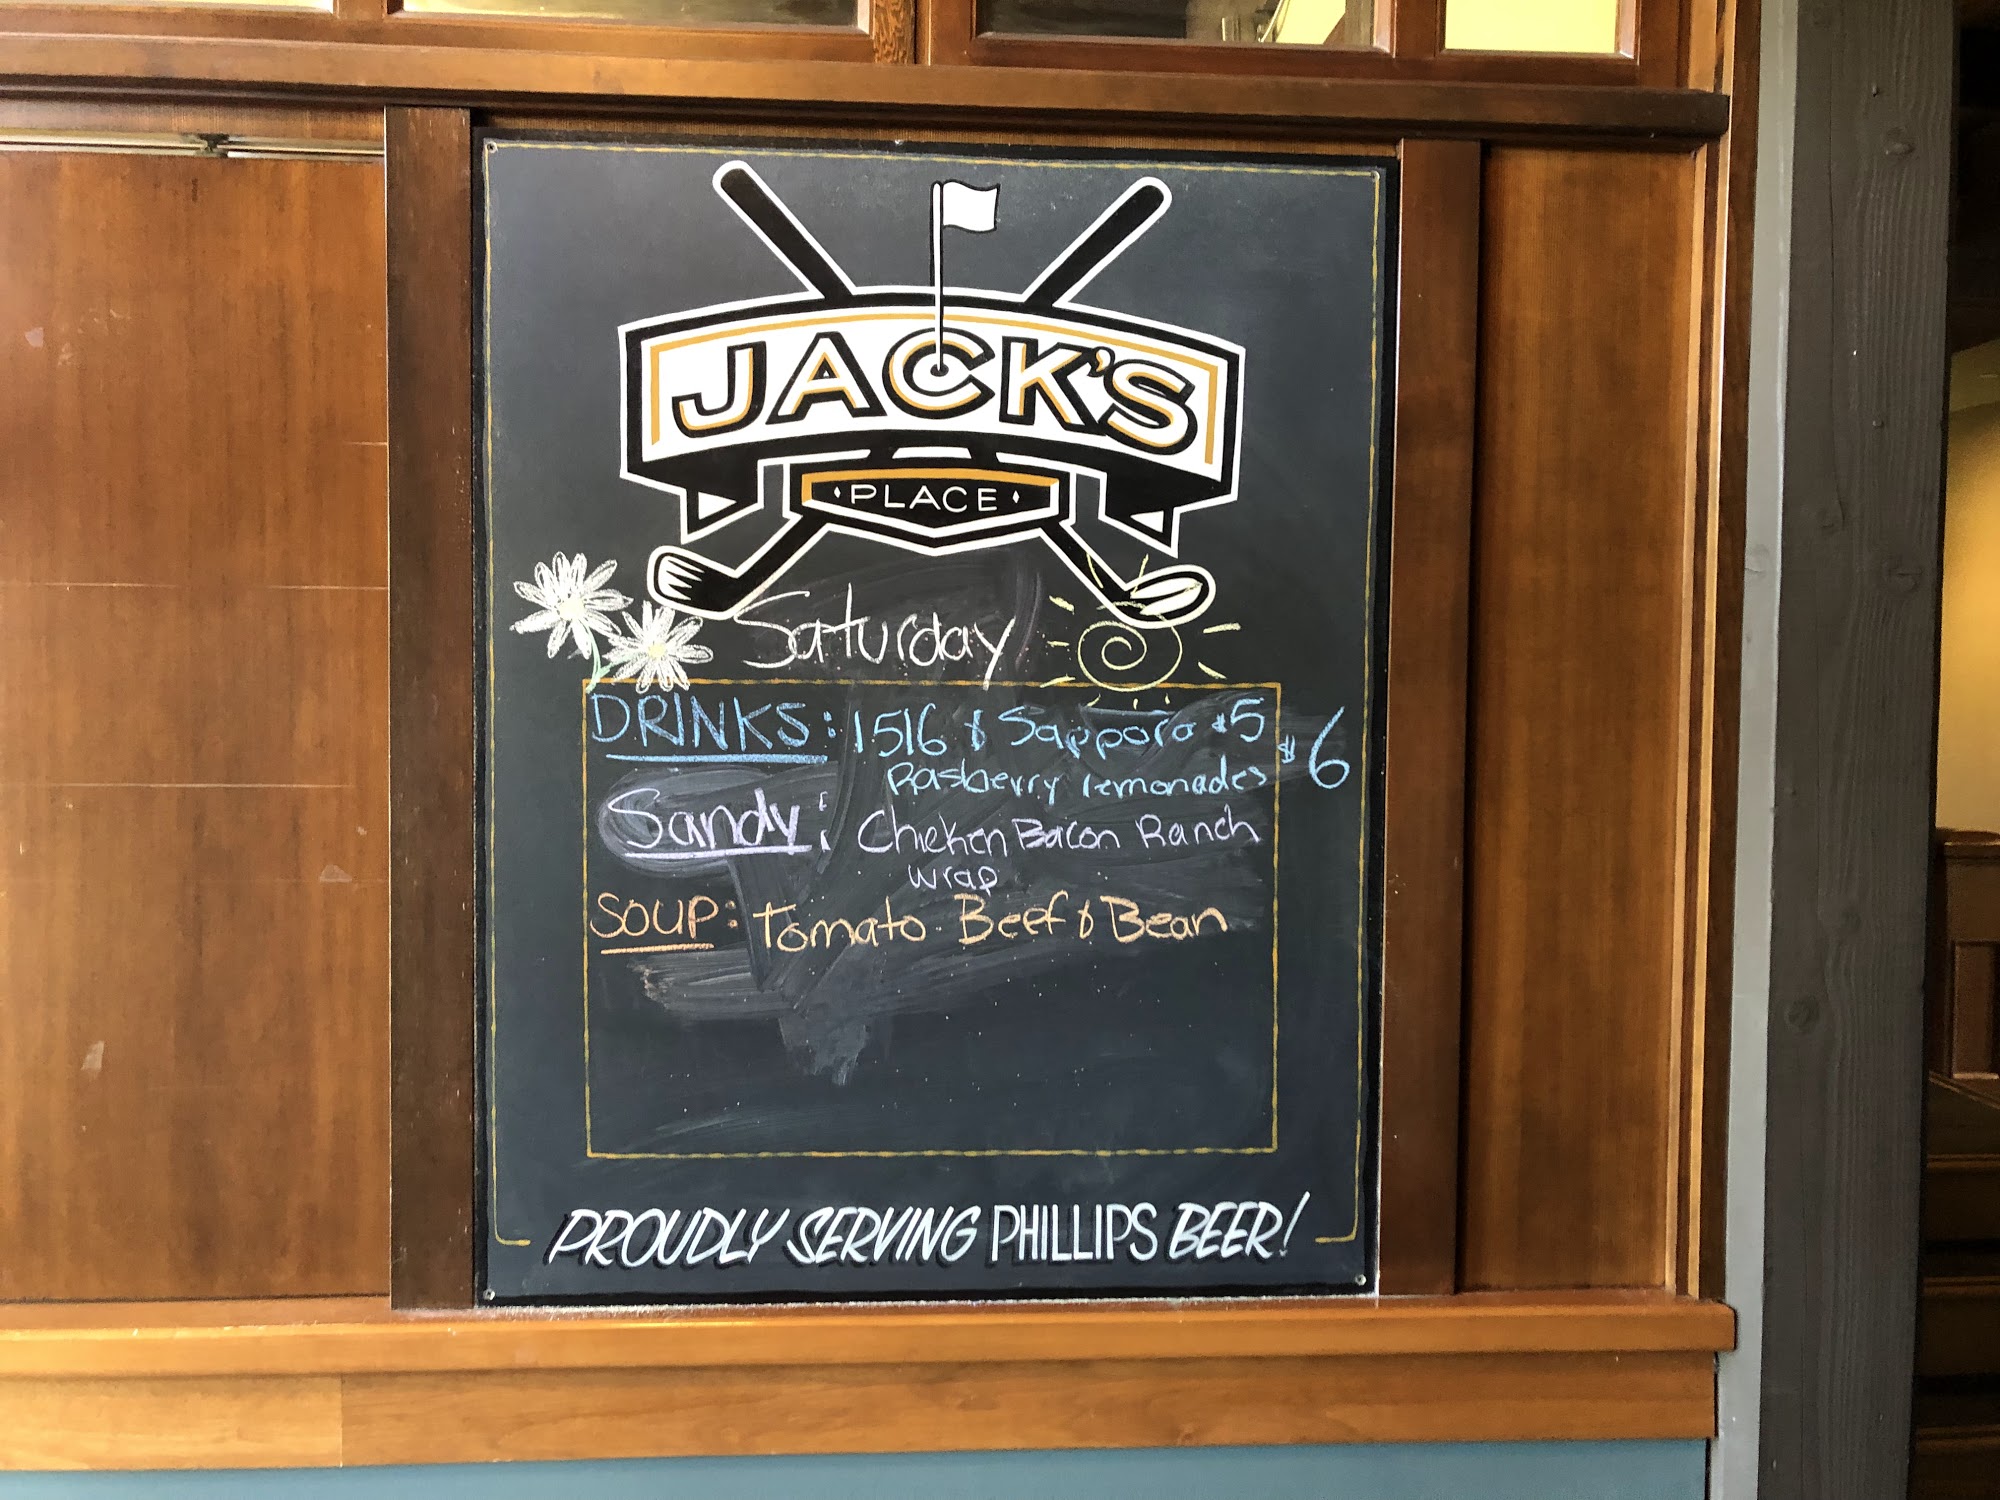 JACK'S
PLACE
Saturday
DRINKS: 1516 & Sapporo $5
Rasberry lemonades $6
Sandy: Chicken Bacon Ranch
wrap
SOUP: Tomato Beef & Bean
PROUDLY SERVING PHILLIPS BEER!